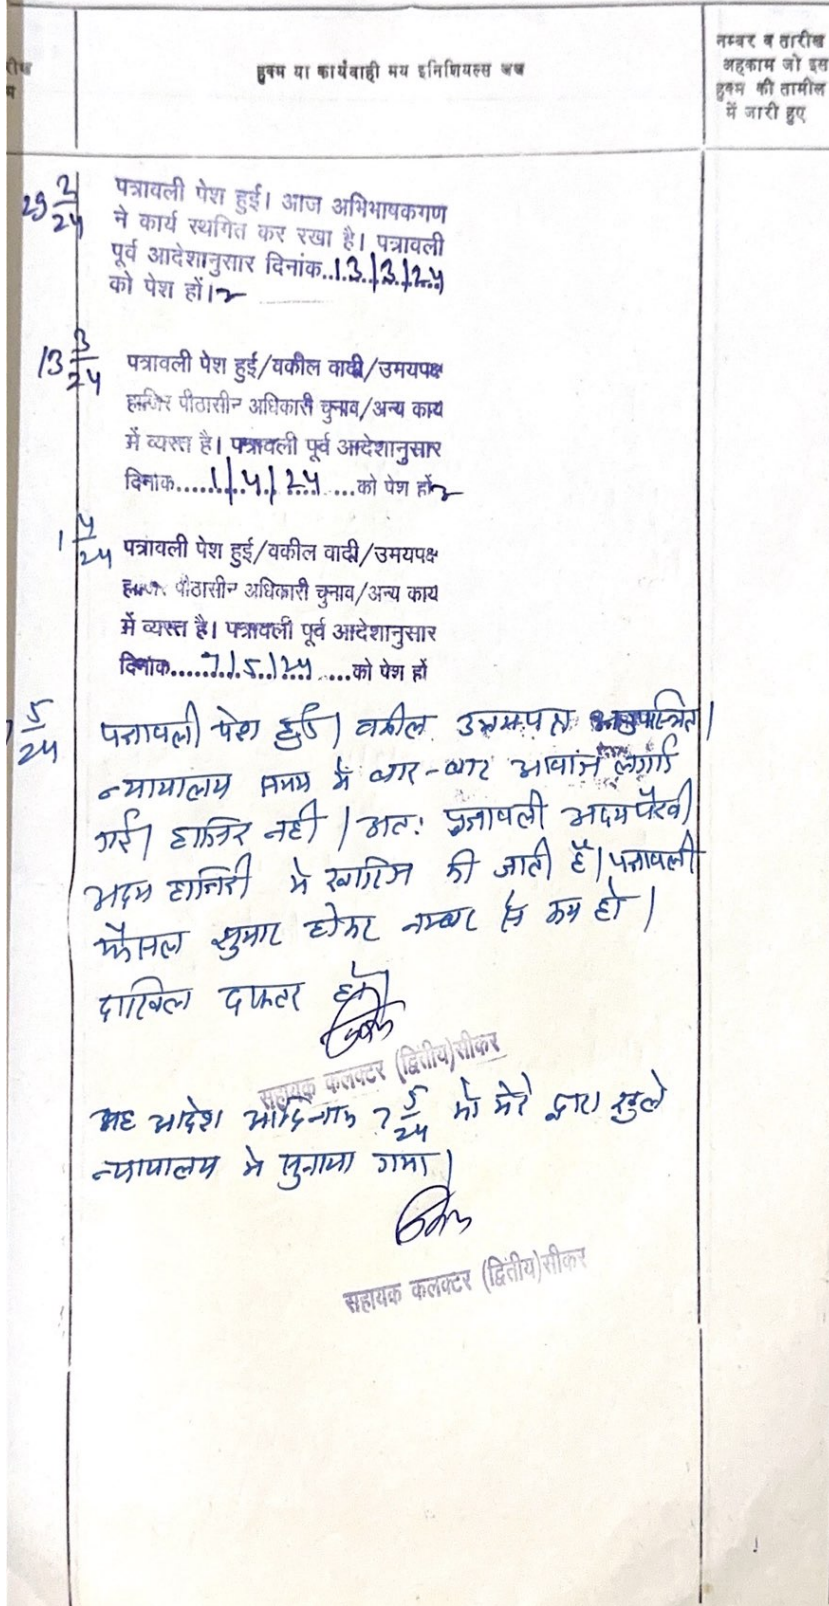 हुक्म या कार्यवाही मय इनिशियल्स जज
नम्बर व तारीख
अहकाम जो इस
हुक्म की तामील
में जारी हुए
29 2/24
पत्रावली पेश हुई। आज अभिभाषकगण
ने कार्य स्थगित कर रखा है। पत्रावली
पूर्व आदेशानुसार दिनांक..13/3/24
को पेश हों।
13 3/24
पत्रावली पेश हुई/वकील वादी/उमयपक्ष
हाजिर पीठासीन अधिकारी चुनाव/अन्य काय
में व्यस्त है। पत्रावली पूर्व आदेशानुसार
दिनांक......1/4/24....को पेश हों
1 4/24
पत्रावली पेश हुई/वकील वादी/उमयपक्ष
हाजिर पीठासीन अधिकारी चुनाव/अन्य काय
में व्यस्त है। पत्रावली पूर्व आदेशानुसार
दिनांक......7/5/24....को पेश हों
7 5/24
पत्रावली पेश हुई। वकील उभयपक्ष अनुपस्थित।
न्यायालय समय में बार-बार आवाज लगाई
गई। हाजिर नही। अतः पत्रावली अदम पैरवी
अदम हाजिरी मे खारिज की जाती है। पत्रावली
फैसल शुमार होकर नम्बर से कम हो।
दाखिल दफ्तर हो।
सहायक कलक्टर (द्वितीय) सीकर
यह आदेश आदिनांक 7 5/24 को मेरे द्वारा खुले
न्यायालय मे सुनाया गया।
सहायक कलक्टर (द्वितीय) सीकर